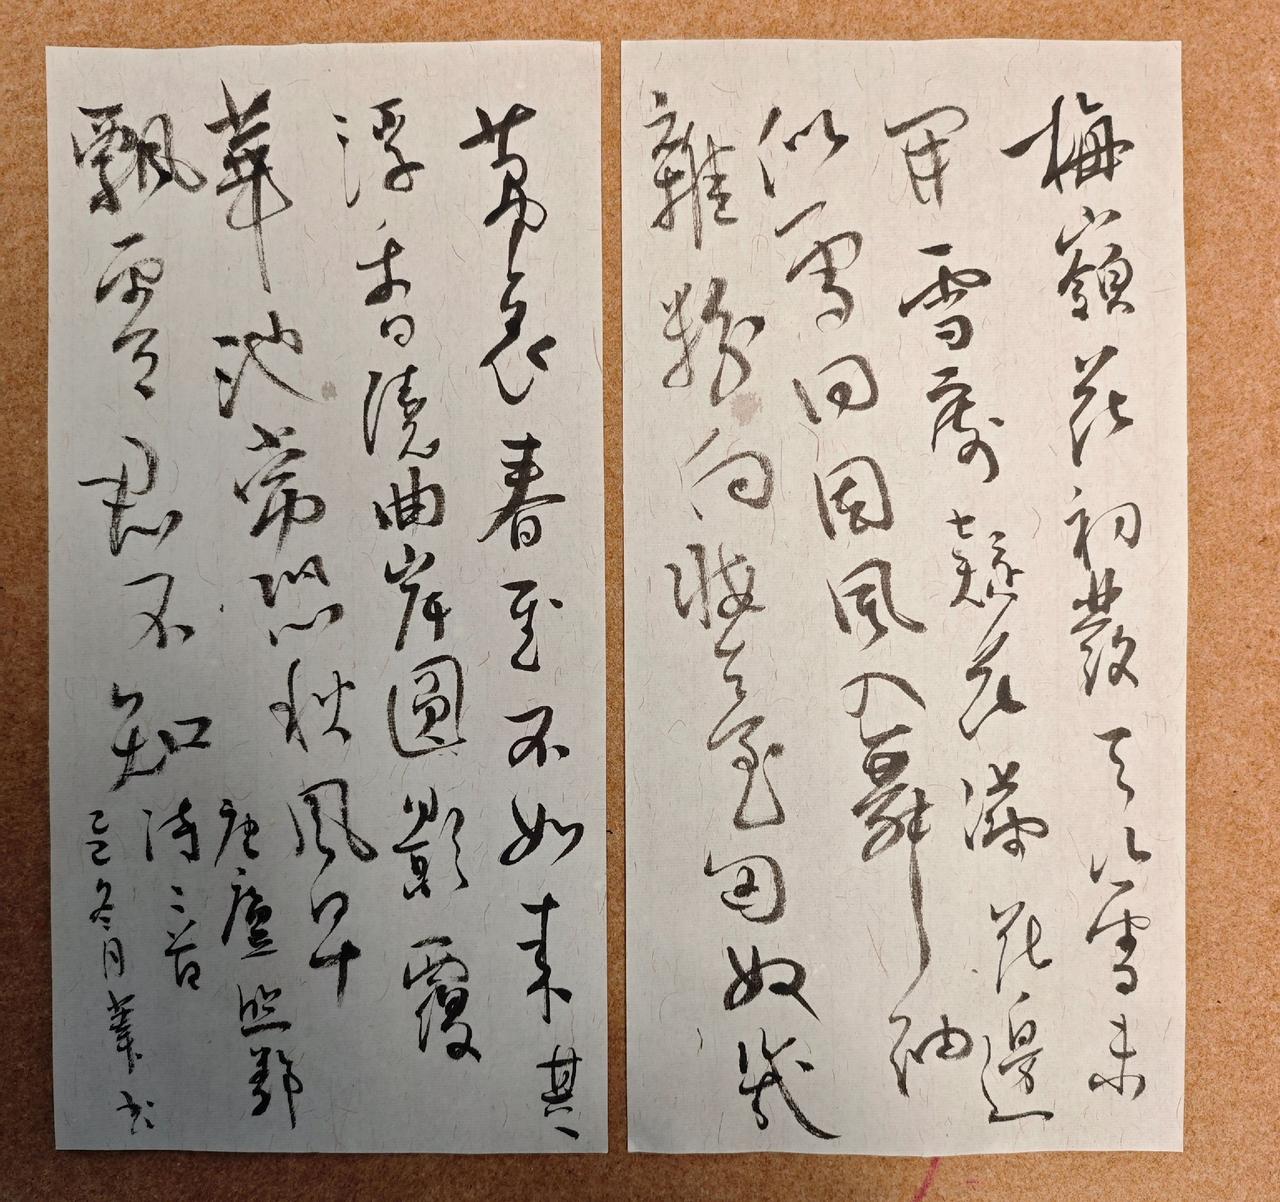 梅嶺花初發天山雪未
開雪處疑花滿花邊
似雪回因風入舞袖
雜粉向妝臺匈奴幾
萬里春至不知来其一
浮香繞曲岸圓影覆
華池常恐秋風早
飄零君不知
唐盧照鄰
詩二首
乙巳冬月书